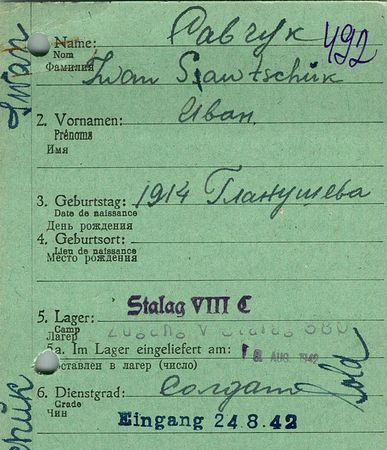 Iwan
Name:
Савчук
492
Nom
Фамилия
Iwan Sawtschuk
2. Vornamen:
Иван.
Prénoms
Имя
3. Geburtstag:
1914
Date de naissance
День рождения
4. Geburtsort:
Lieu de naissance
Место рождения
5. Lager:
Stalag VIII C
Camp
Лагерь
Zugang v Stalag
a. Im Lager eingeliefert am:
AUG. 1942
оставлен в лагерь (число)
6. Dienstgrad:
Солдат
Sold
Grade
Чин
Eingang 24.8.42